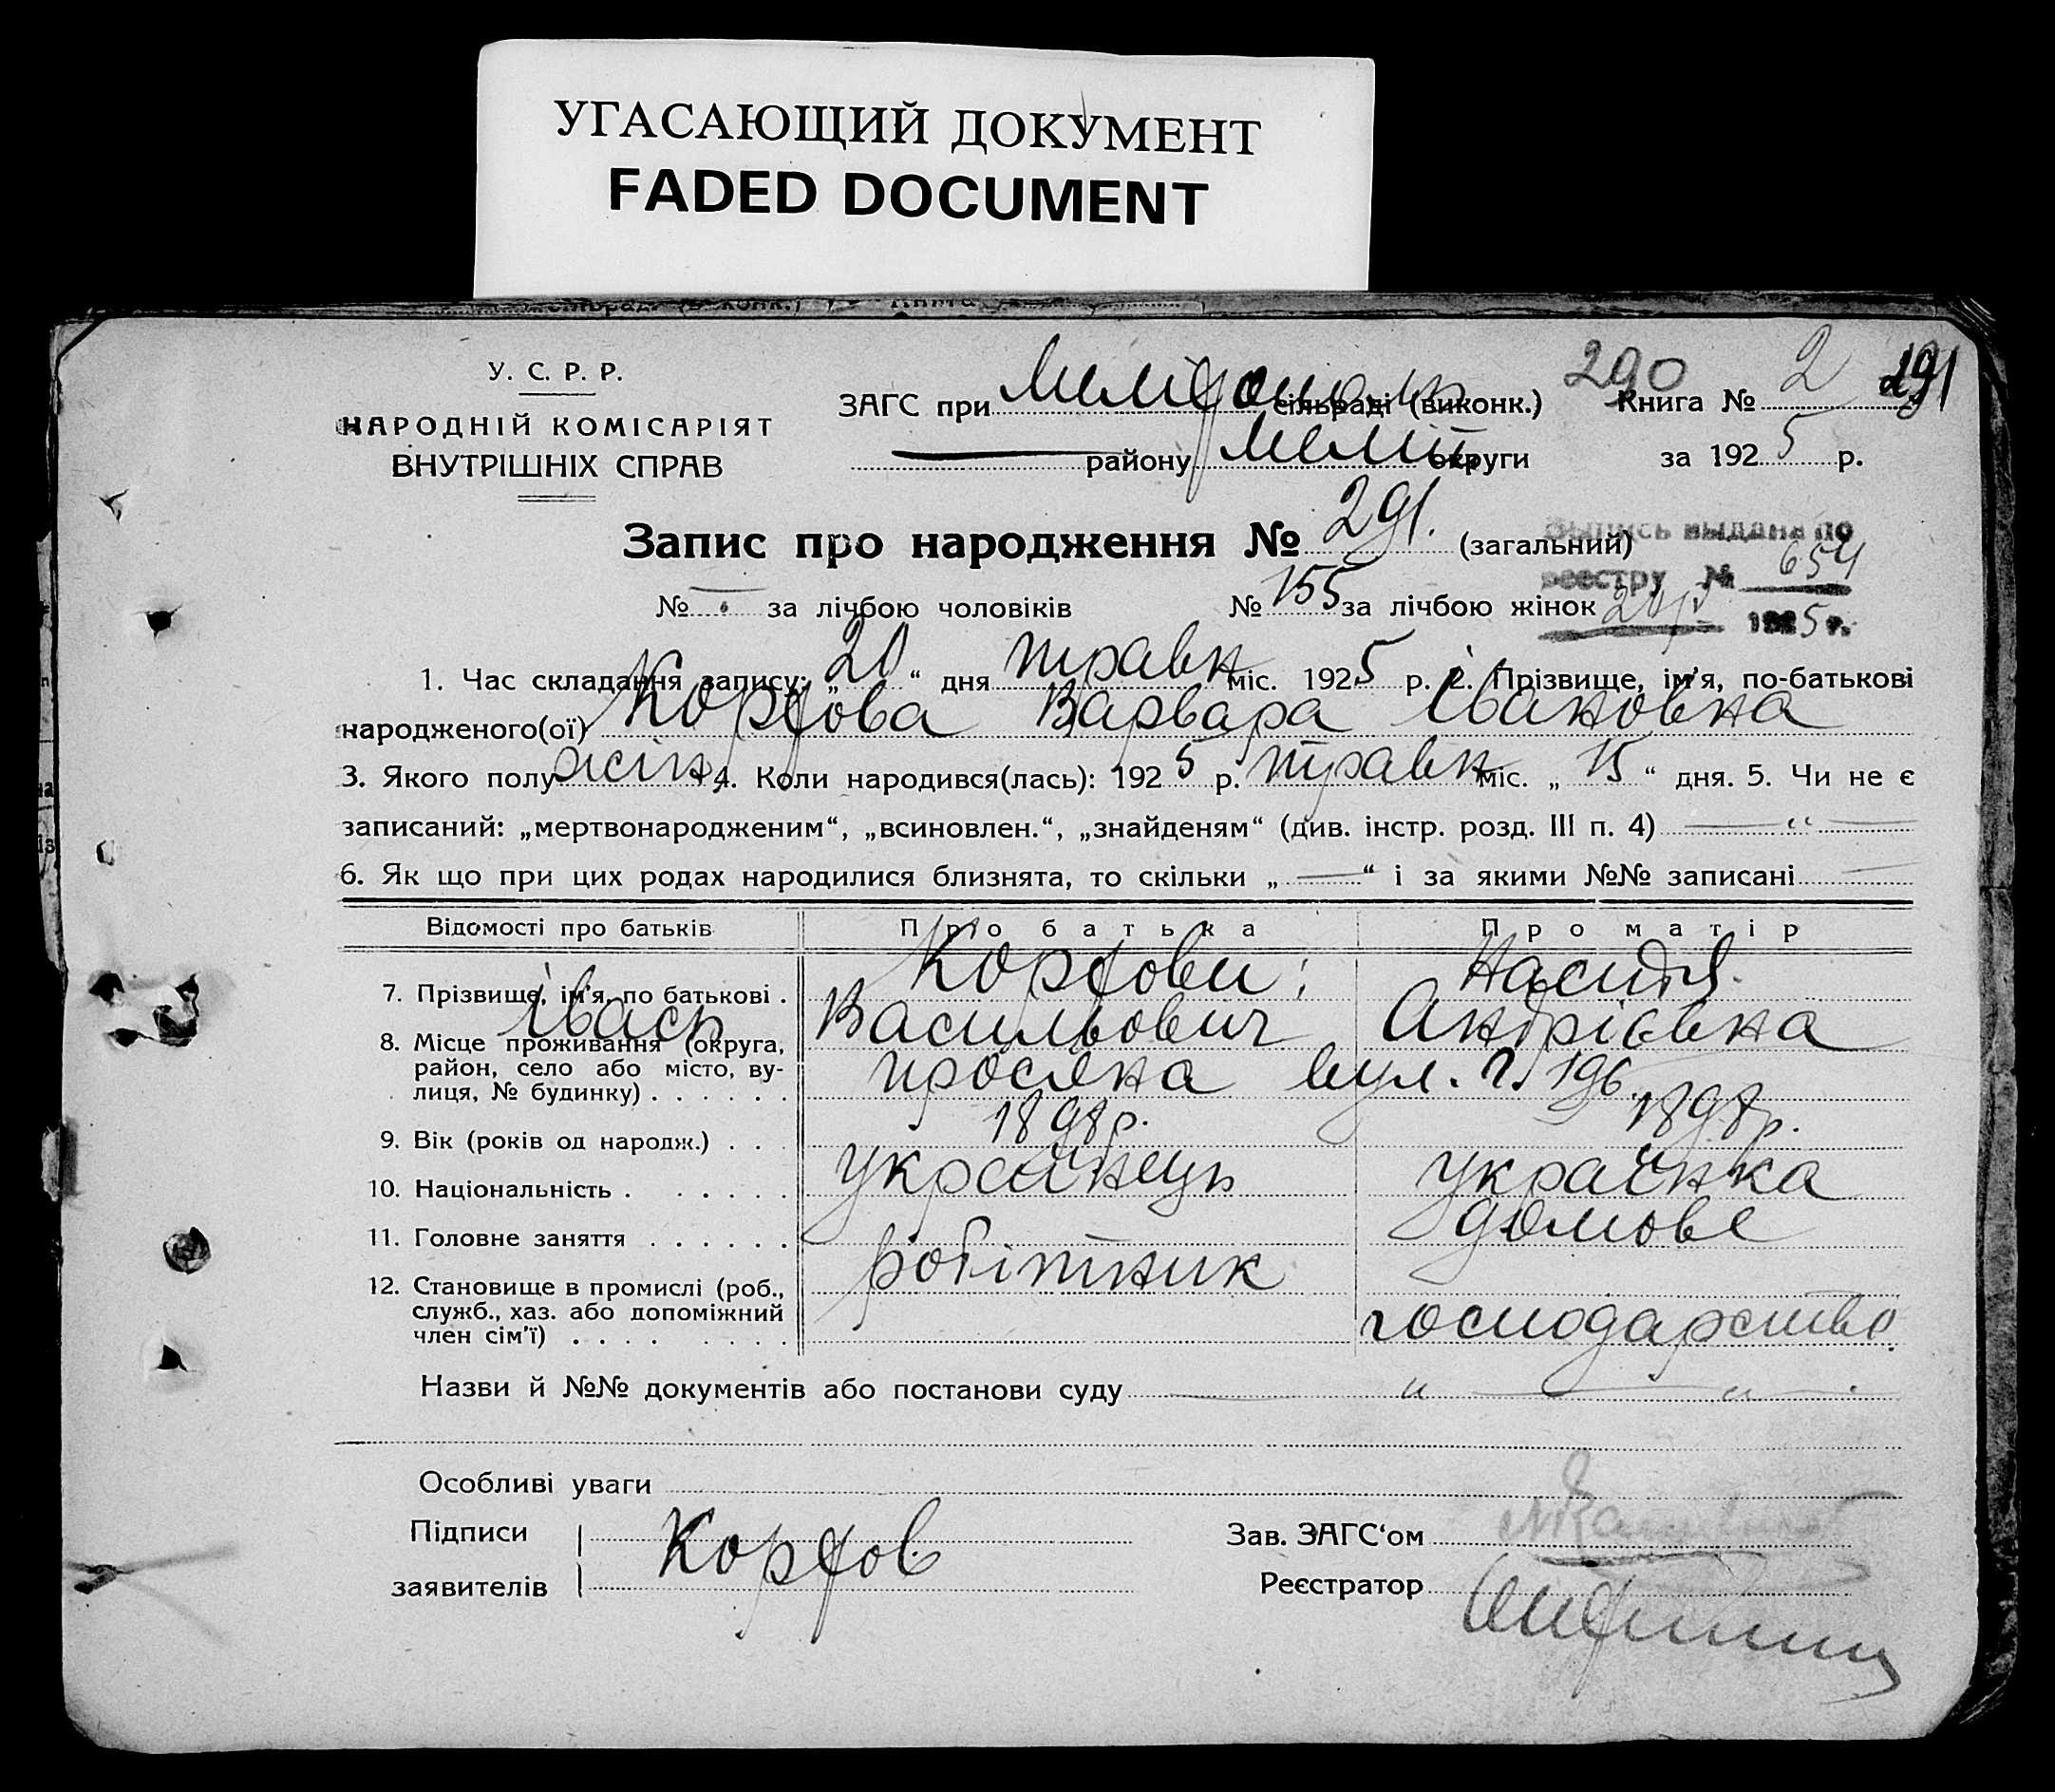 УГАСАЮЩИЙ ДОКУМЕНТ
FADED DOCUMENT
У. С. Р. Р.
НАРОДНІЙ КОМІСАРІЯТ
ВНУТРІШНІХ СПРАВ
290
ЗАГС при Мелітополь сільраді (виконк.) Книга № 2 291
району Меліт округи за 1925 р.
Запис про народження № 291. (загальний)
Выпись выдана по
реестру № 654
1925 г.
№ за лічбою чоловіків № 155 за лічбою жінок
1. Час складання запису: „20“ дня травн міс. 1925 р. 2. Прізвище, ім'я, по-батькові
народженого(ої) Корфова Варвара Івановна
3. Якого полу жін. 4. Коли народився(лась): 1925 р. травн міс. „15“ дня. 5. Чи не є
записаний: „мертвонародженим“, „всиновлен.“, „знайденям“ (див. інстр. розд. III п. 4) — “ —
6. Як що при цих родах народилися близнята, то скільки „—“ і за якими №№ записані —
Відомості про батьків Про батька Про матір
7. Прізвище, ім'я, по батькові . Корфови; Настя
Івась Васильович Андрієвна
8. Місце проживання (округа,
район, село або місто, ву-
лиця, № будинку) . . . . . . просяна вул. 196.
9. Вік (років од народж.) . . . 1898р. 1898р.
10. Національність . . . . . . українець українка
11. Головне заняття . . . . . . робітник домове
12. Становище в промислі (роб.,
служб., хаз. або допоміжний
член сім'ї) . . . . . . . . господарство.
Назви й №№ документів або постанови суду — “ — “ —
Особливі уваги
Підписи Корфов Зав. ЗАГС‘ом
заявителів Реєстратор